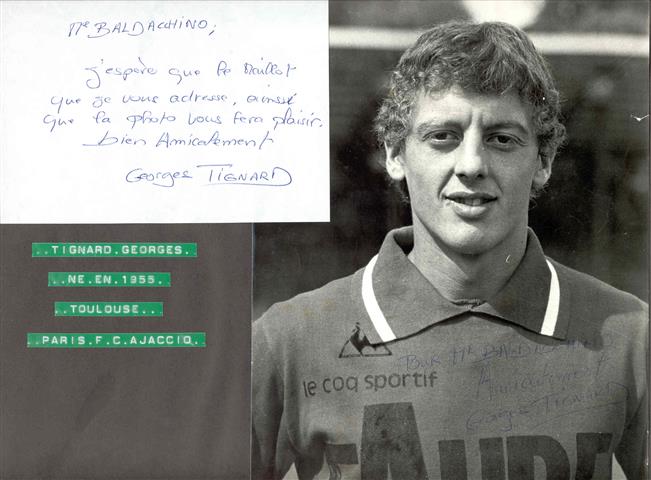 Mr BALDACCHINO,
j'espère que le Maillot
que je vous adresse, ainsi
que la photo vous fera plaisir.
bien Amicalement
Georges TIGNARD
..TIGNARD.GEORGES.
..NE.EN.1955.
..TOULOUSE..
..PARIS.F.C.AJACCIO.
le coq sportif
Pour Mr BALDACCHINO
Amicalement
Georges TIGNARD